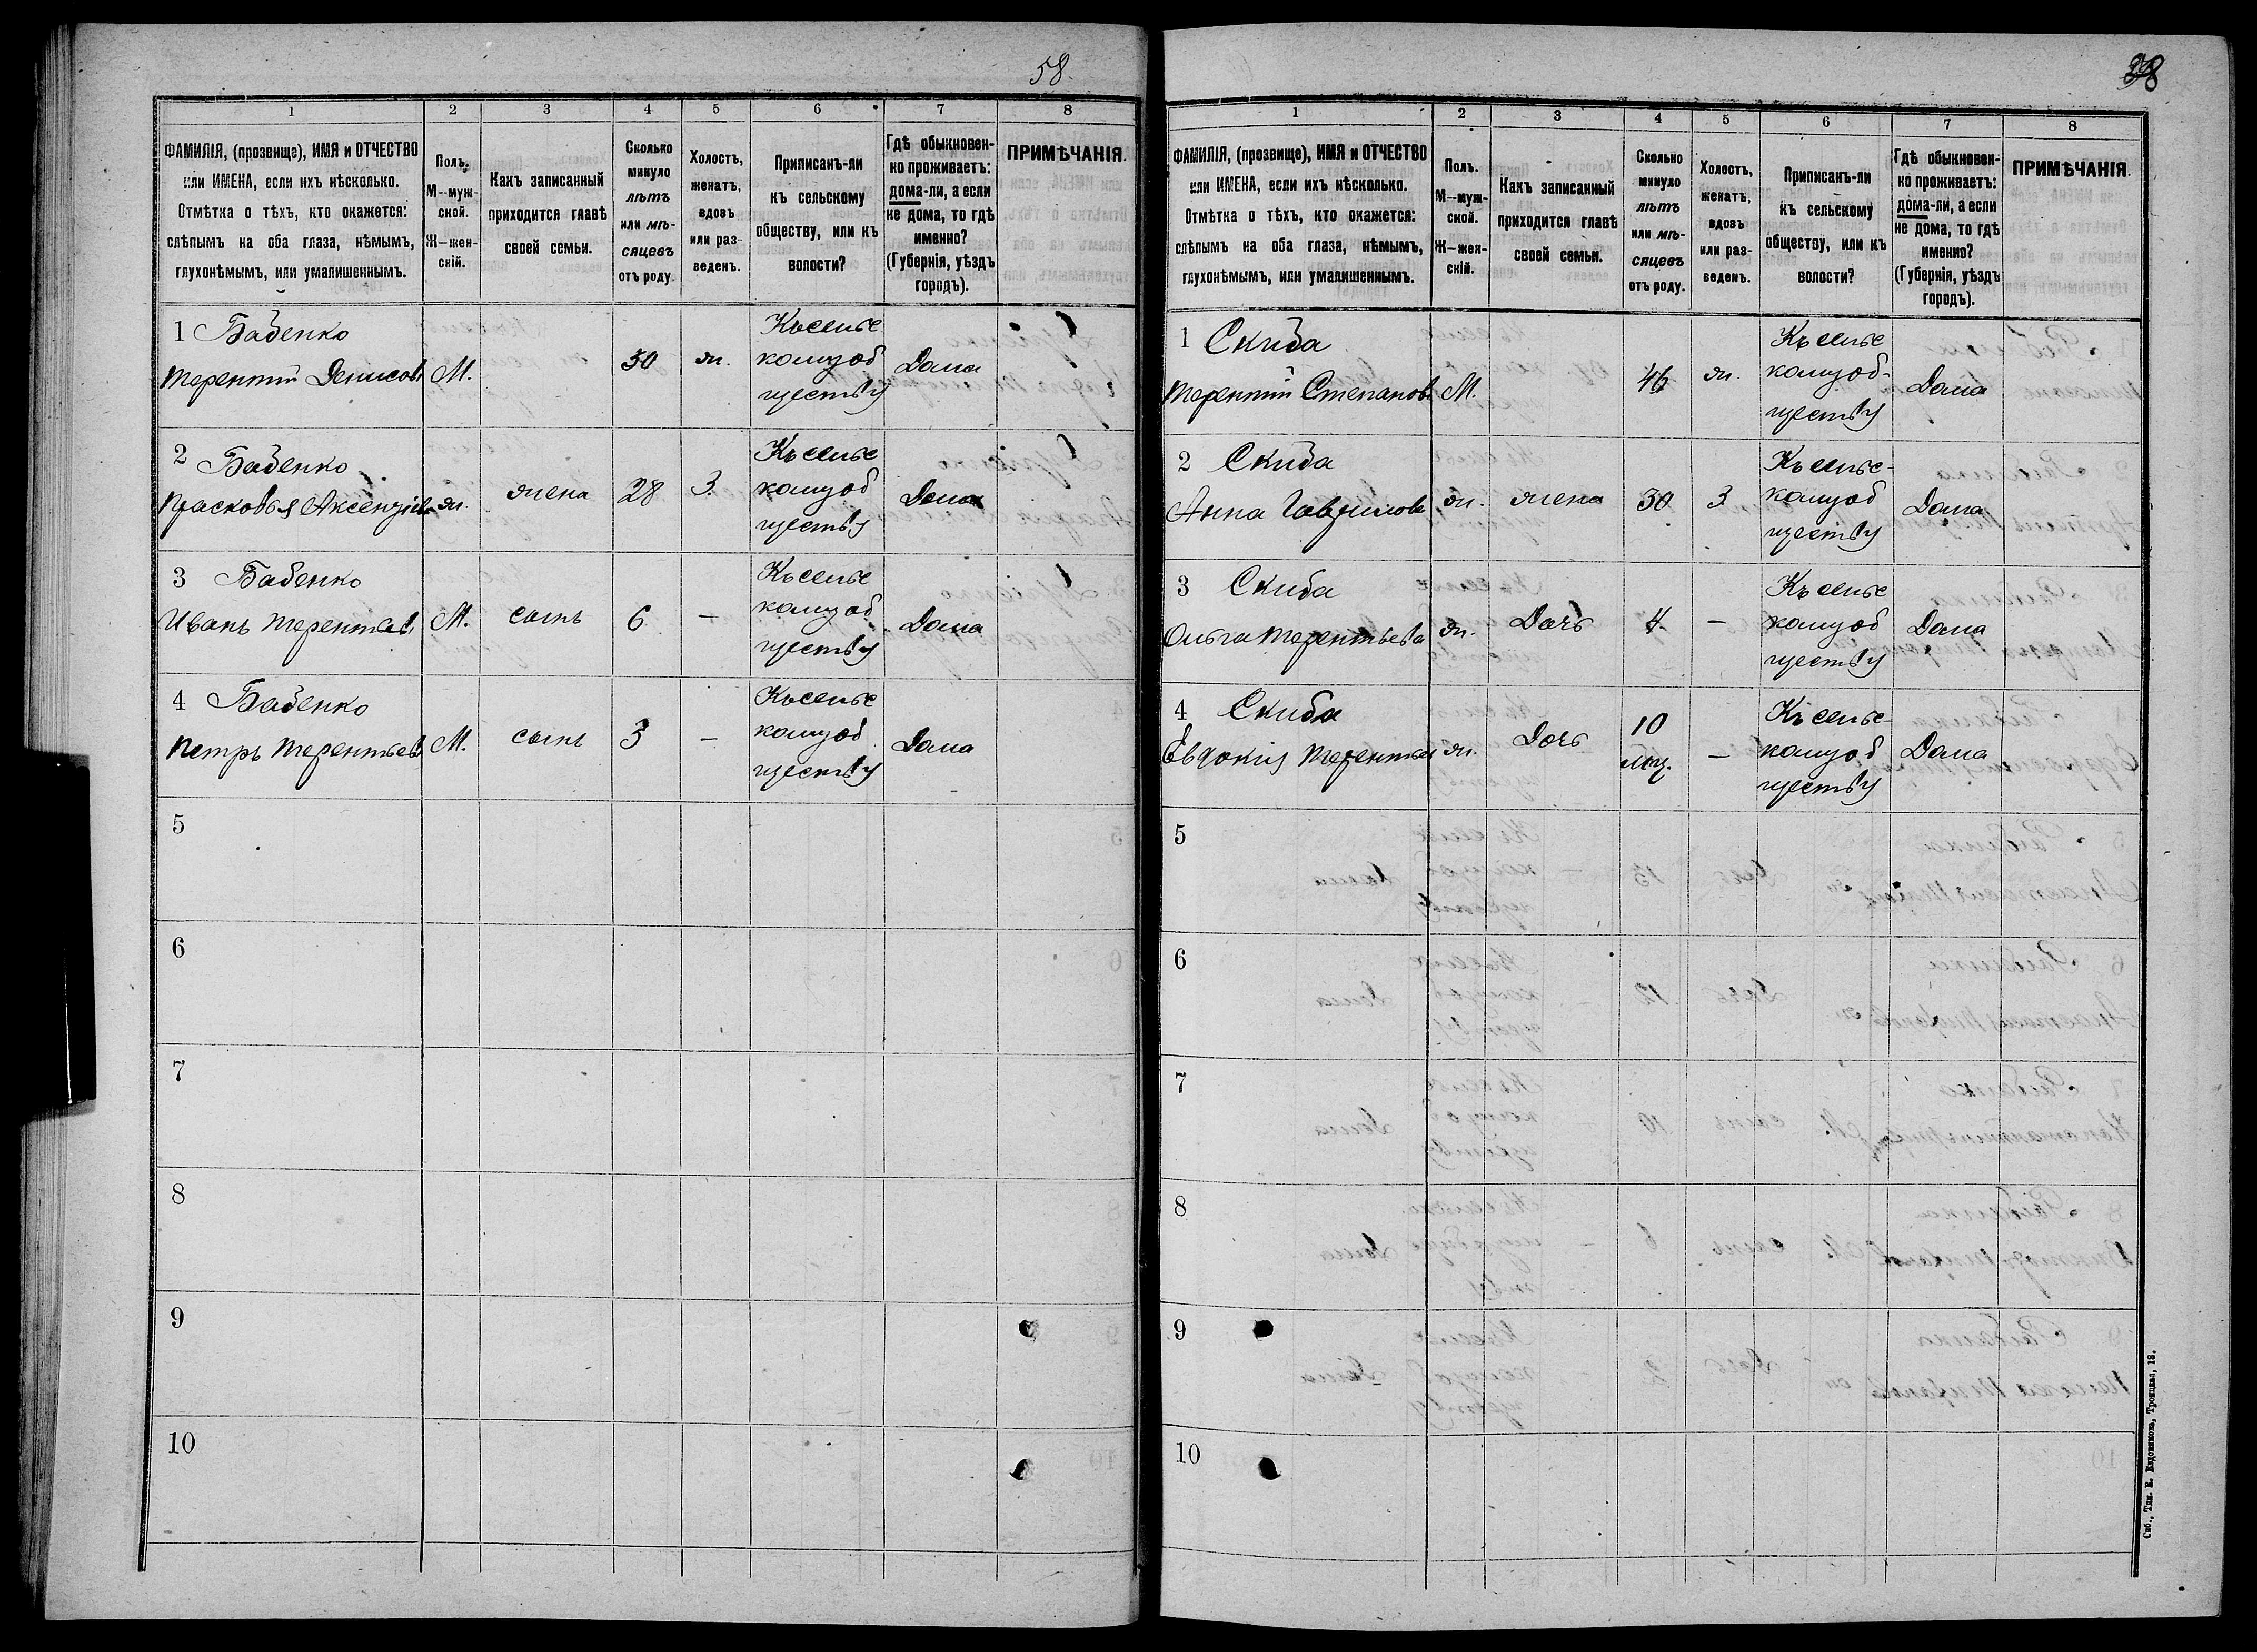 58.
1
2
3
4
5
6
7
8
ФАМИЛІЯ, (прозвище), ИМЯ и ОТЧЕСТВО
или ИМЕНА, если ихъ нѣсколько.
Отмѣтка о тѣхъ, кто окажется:
слѣпымъ на оба глаза, нѣмымъ,
глухонѣмымъ, или умалишеннымъ.
Полъ.
М—муж-
ской.
Ж—жен-
скій.
Какъ записанный
приходится главѣ
своей семьи.
Сколько
минуло
лѣтъ
или мѣ-
сяцевъ
отъ роду.
Холостъ,
женатъ,
вдовъ
или раз-
веденъ.
Приписанъ-ли
къ сельскому
обществу, или къ
волости?
Гдѣ обыкновен-
но проживаетъ:
дома-ли, а если
не дома, то гдѣ
именно?
(Губернія, уѣздъ
городъ).
ПРИМѢЧАНІЯ.
1 Бабенко
Терентій Денисовъ М. 30 ж. Къ сельс
кому об
ществу Дома
2 Бабенко
Прасковья Аксентіев ж. жена 28 З. Къ сельс
кому об
ществу Дома
3 Бабенко
Иванъ Терентьевъ М. сынъ 6 — Къ сельс
кому об
ществу Дома
4 Бабенко
Петръ Терентьевъ М. сынъ 3 — Къ сельс
кому об
ществу Дома
5
6
7
8
9
10
1
2
3
4
5
6
7
8
ФАМИЛІЯ, (прозвище), ИМЯ и ОТЧЕСТВО
или ИМЕНА, если ихъ нѣсколько.
Отмѣтка о тѣхъ, кто окажется:
слѣпымъ на оба глаза, нѣмымъ,
глухонѣмымъ, или умалишеннымъ.
Полъ.
М—муж-
ской.
Ж—жен-
скій.
Какъ записанный
приходится главѣ
своей семьи.
Сколько
минуло
лѣтъ
или мѣ-
сяцевъ
отъ роду.
Холостъ,
женатъ,
вдовъ
или раз-
веденъ.
Приписанъ-ли
къ сельскому
обществу, или къ
волости?
Гдѣ обыкновен-
но проживаетъ:
дома-ли, а если
не дома, то гдѣ
именно?
(Губернія, уѣздъ
городъ).
ПРИМѢЧАНІЯ.
1 Скиба
Терентій Степановъ М. 46 ж. Къ сельс
кому об-
ществу Дома
2 Скиба
Анна Гаврилова ж. жена 30 З Къ сельс-
кому об
ществу Дома
3 Скиба
Ольга Терентьева ж. Дочь 4 — Къ сельс
кому об
ществу Дома
4 Скиба
Евдокія Терентьев ж. Дочь 10
мѣц. — Къ сельс-
кому об
ществу Дома
5
6
7
8
9
10
Спб., Тип. Е. Евдокимова, Троицкая, 18.